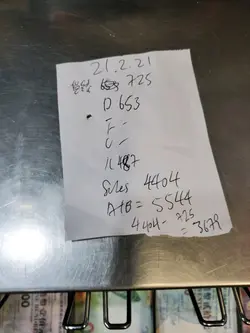 21.2.21
725
D 653
F -
U -
K 487
Sales 4404
A+B = 5544
4404 - 725
= 3679